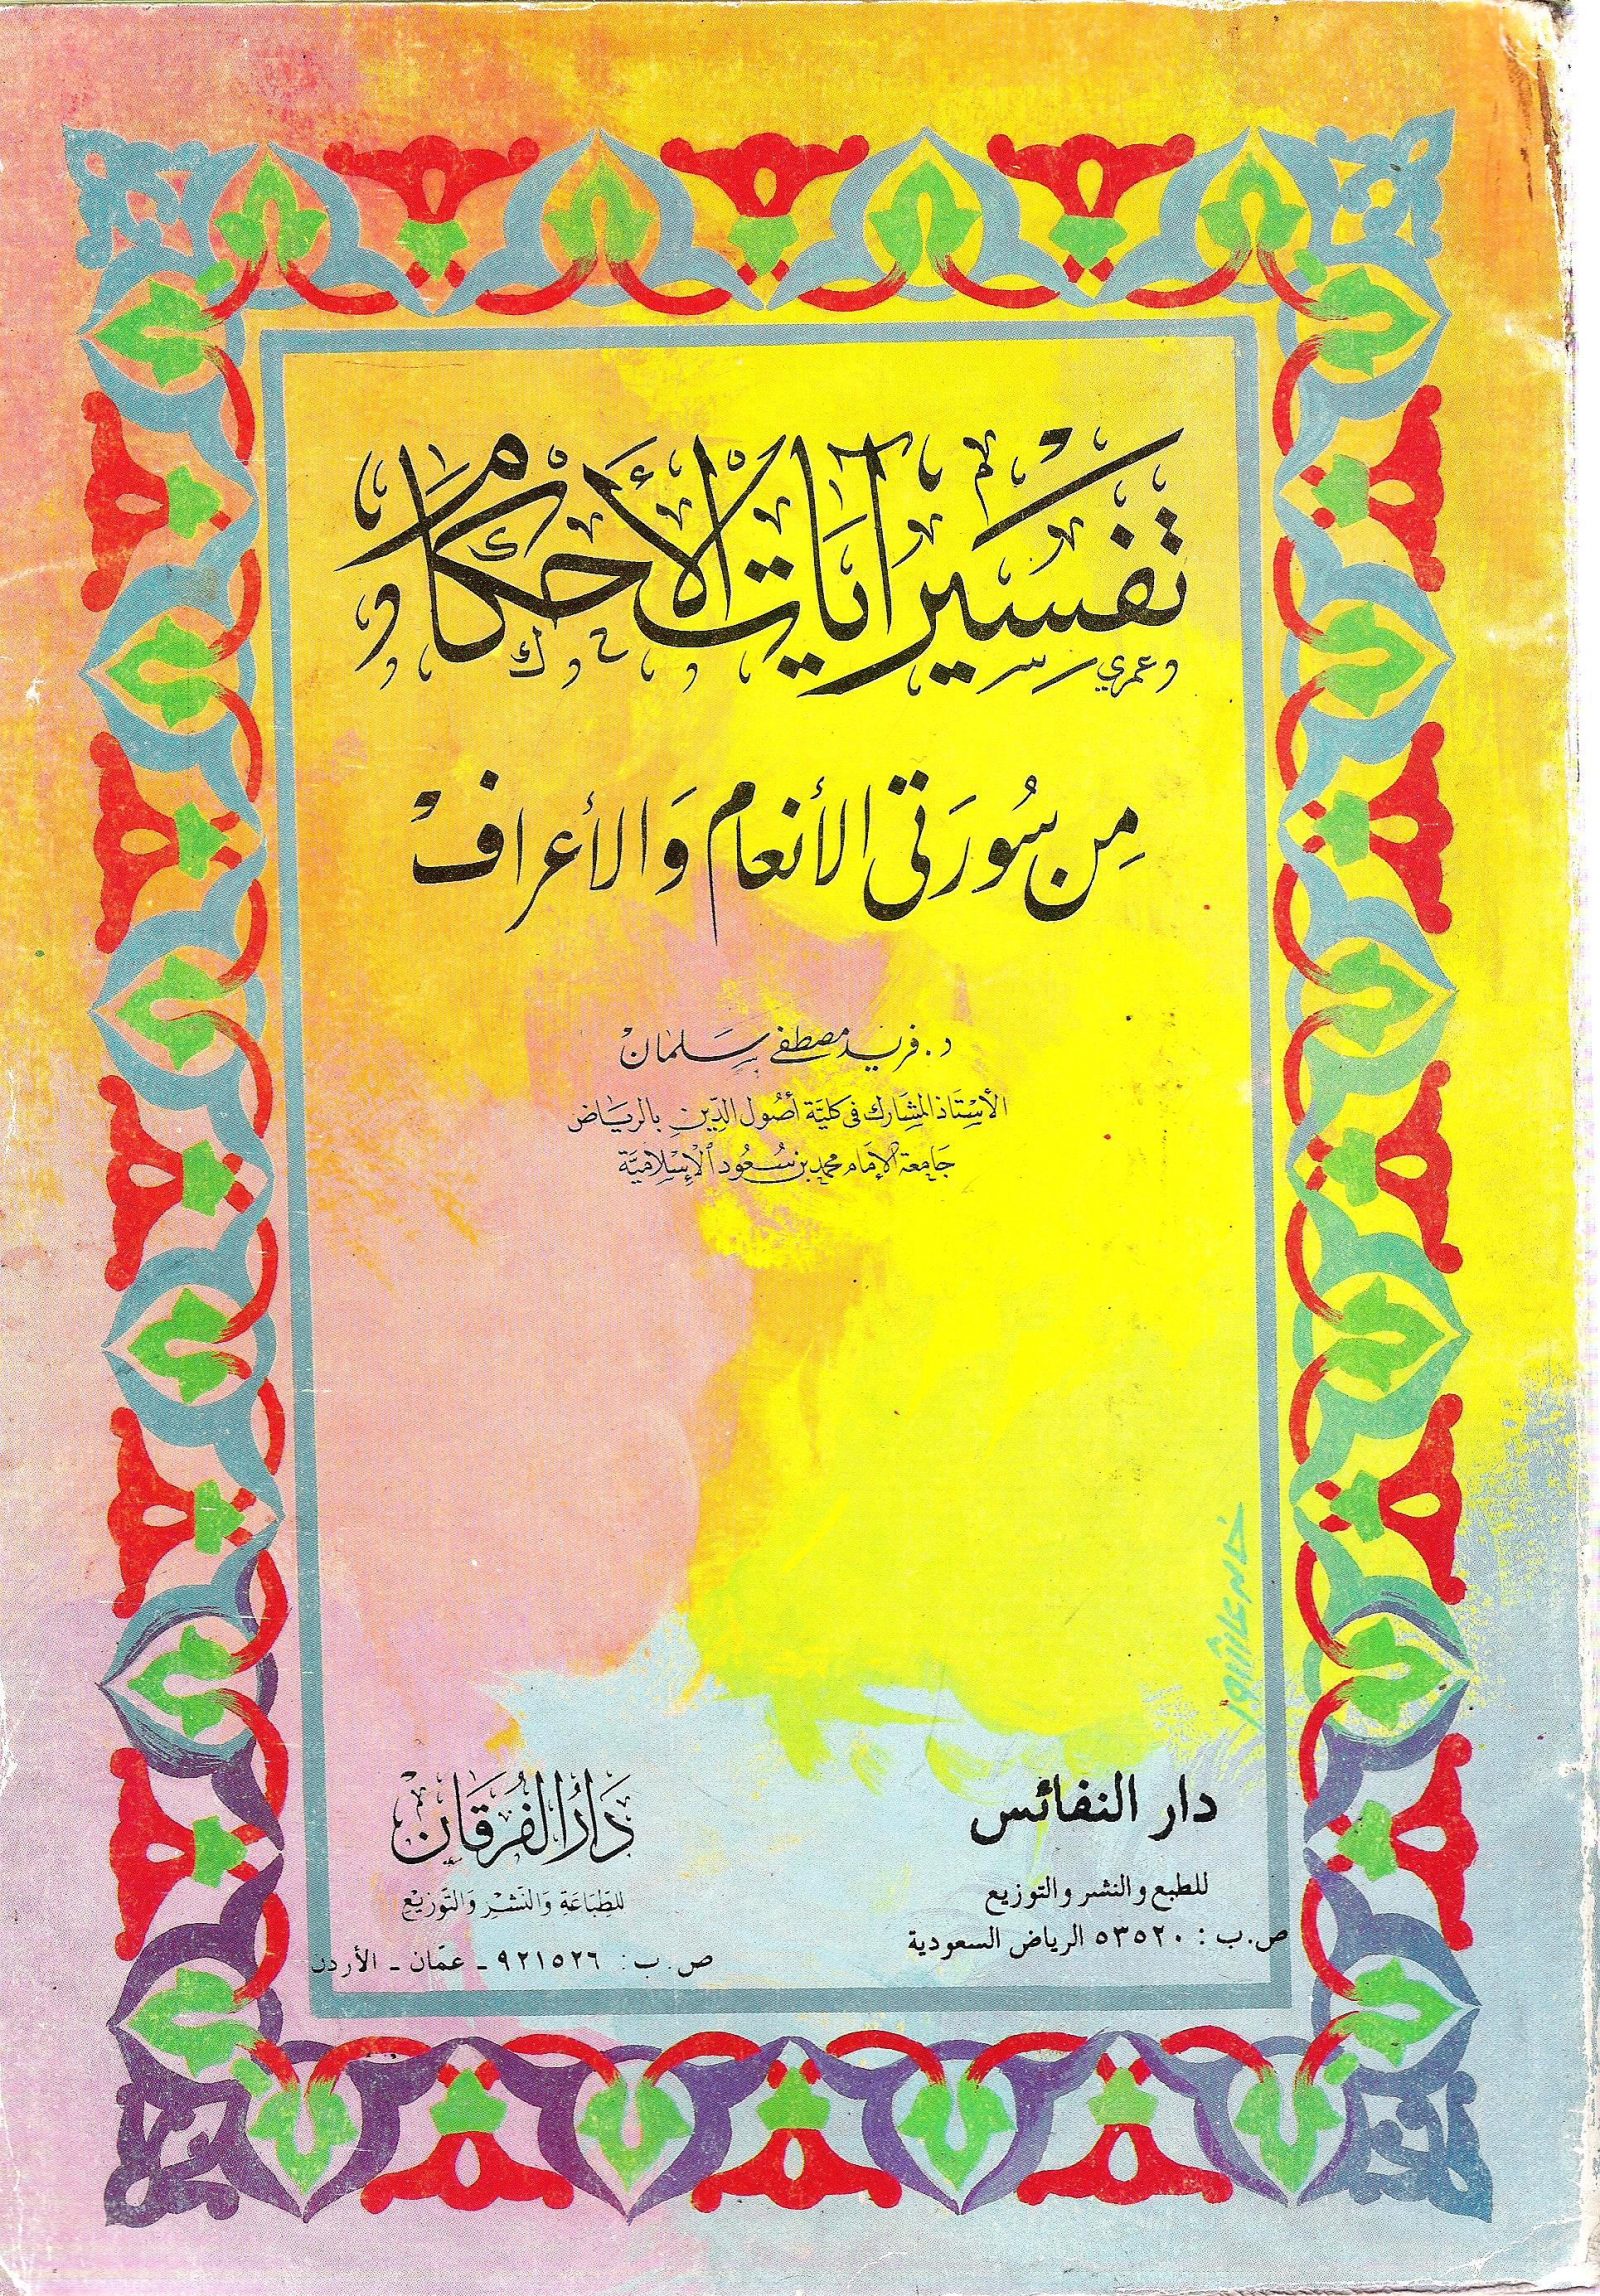 تفسير آيات الأحكام
عمري
من سورتي الأنعام والأعراف
د. فريد مصطفى سلمان
الأستاذ المشارك في كلية أصول الدين بالرياض
جامعة الإمام محمد بن سعود الإسلامية
دار النفائس
للطبع والنشر والتوزيع
ص.ب : ٥٣٥٢٠ الرياض السعودية
دار الفرقان
للطباعة والنشر والتوزيع
ص. ب: ٩٢١٥٢٦ - عمّان - الأردن